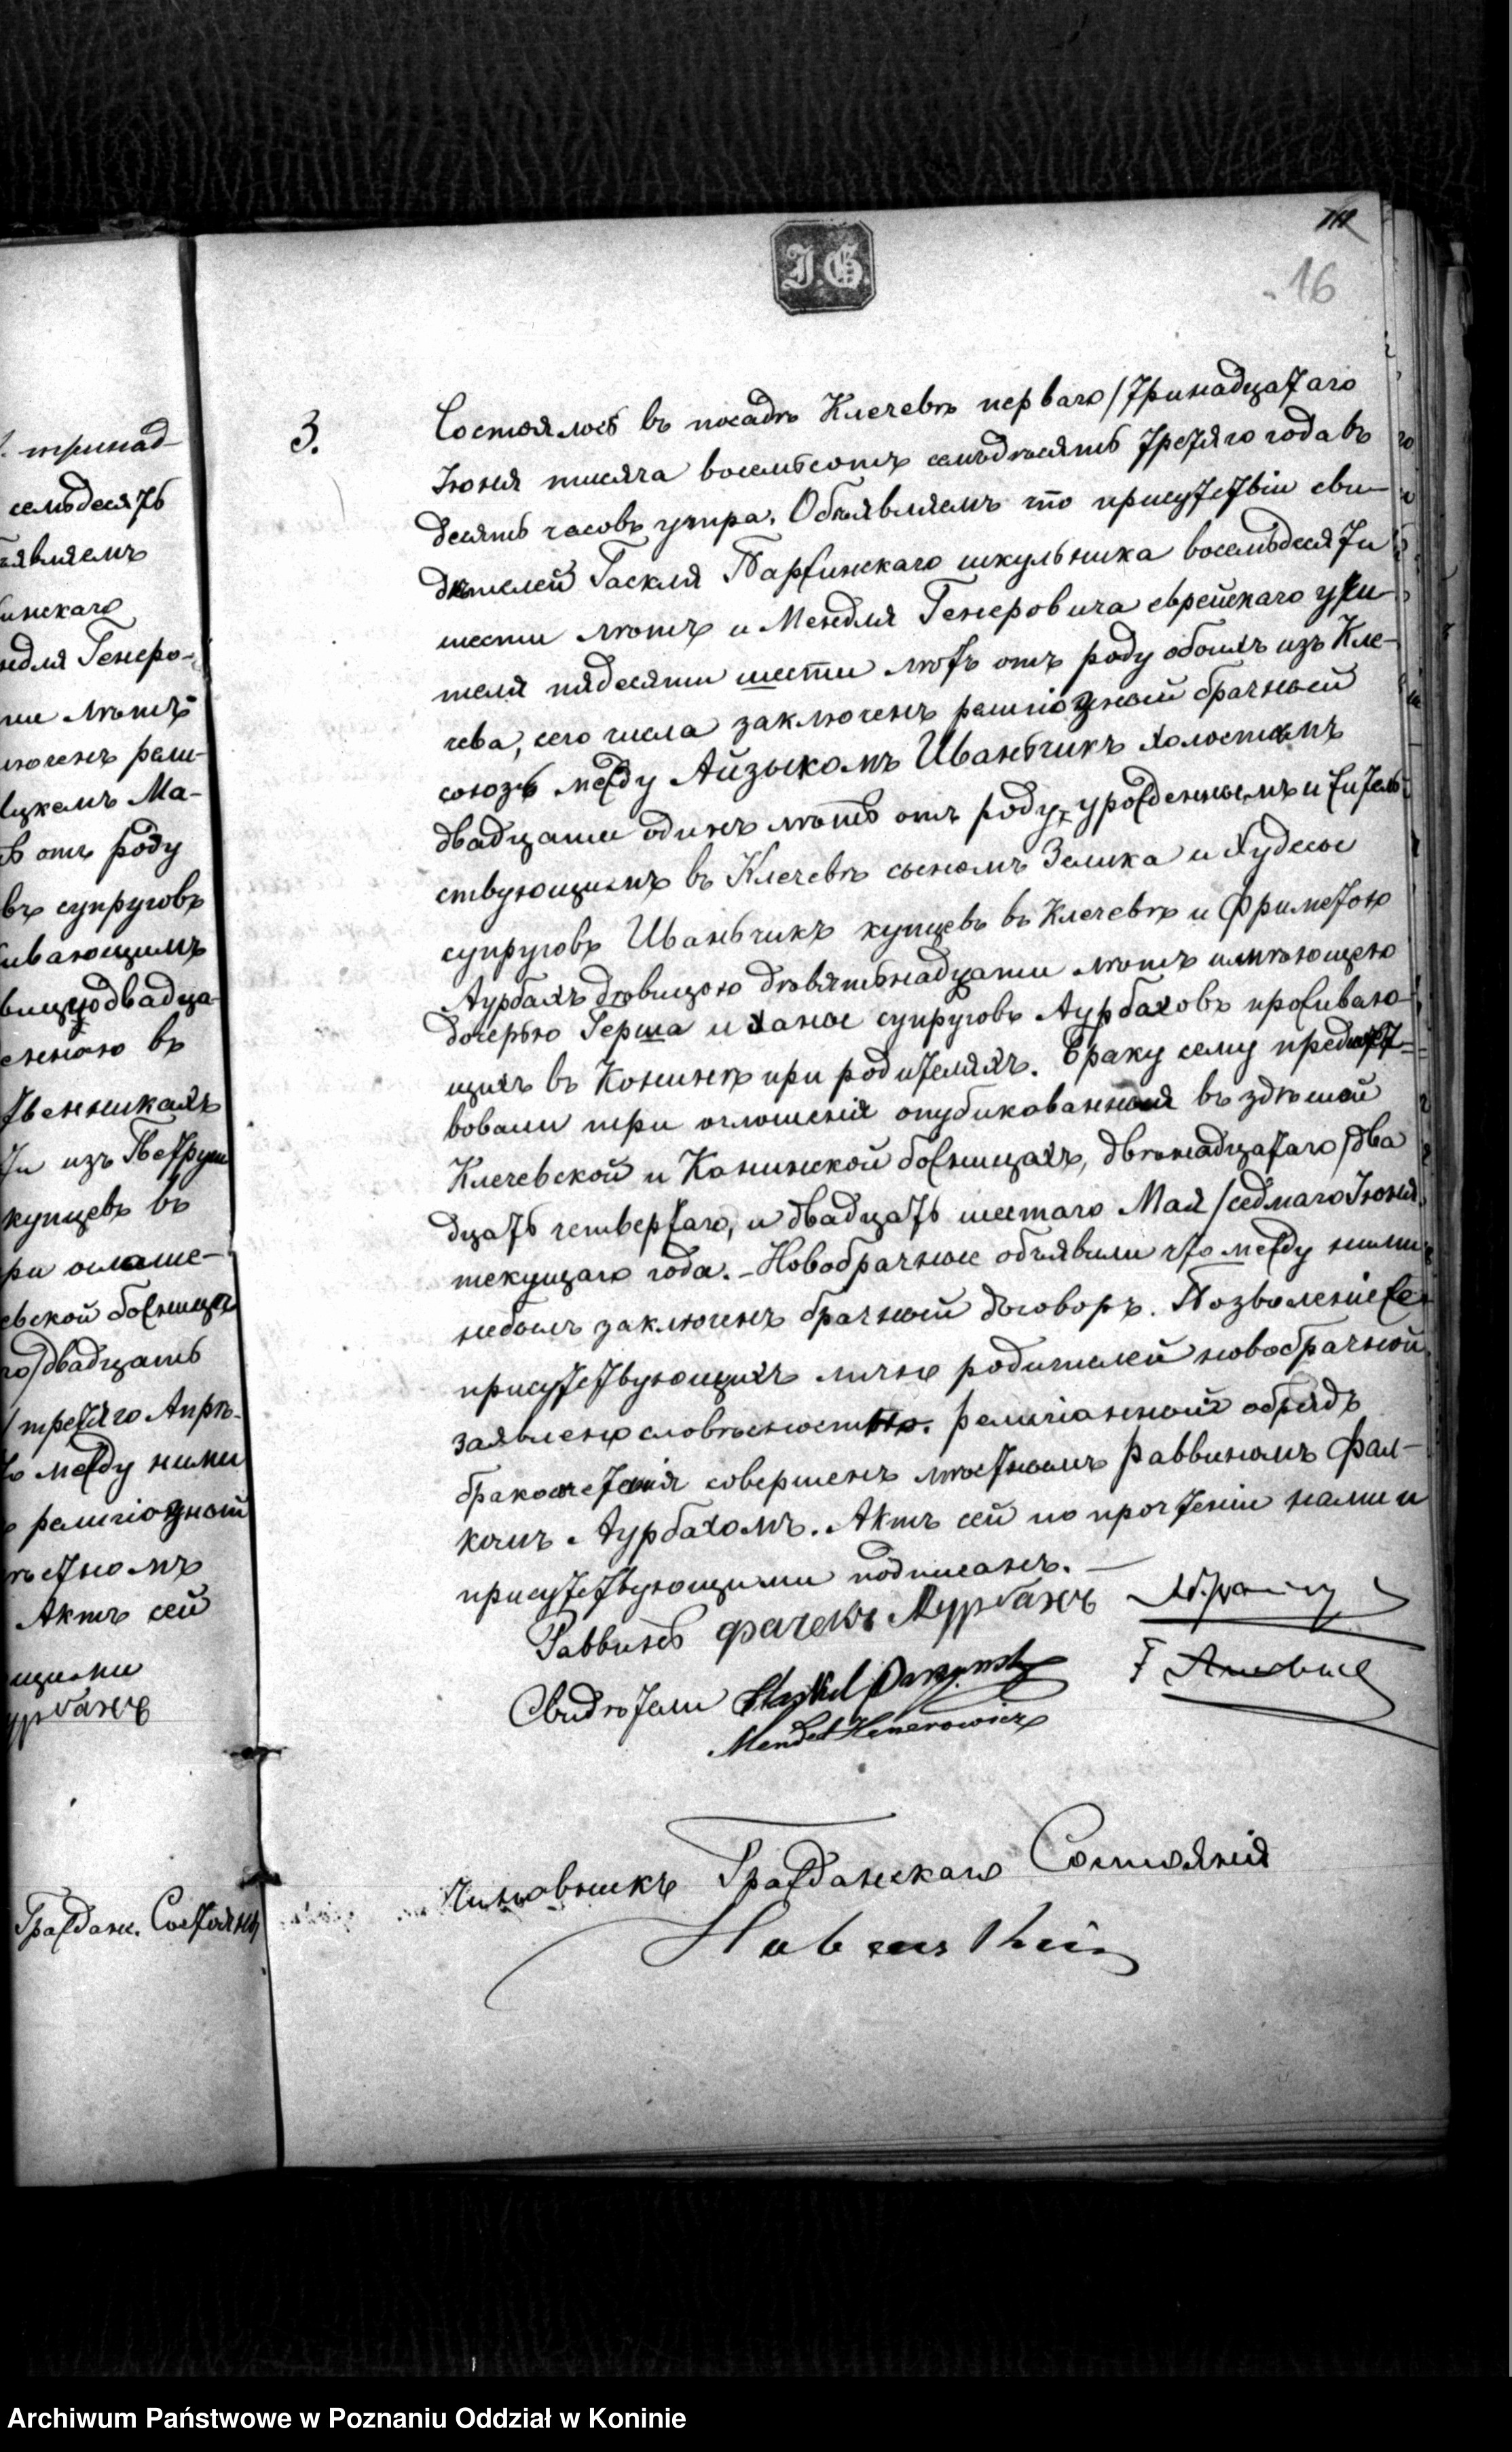 J.G.
16
3.
Состоялось въ посадѣ Клечевѣ перваго/тринадцатаго
Іюня тысяча восемьсотъ семьдѣсять третяго года въ
десять часовъ утра. Объявляемъ что присутствіи сви-
дѣтелей Гаскля Паржинскаго шкульника восемьдесяти
шести лѣтъ и Мендля Генеровича еврейскаго учи-
теля пядесяти шести лѣтъ отъ роду обоихъ изъ Кле-
чева, сего числа заключенъ религіозный брачный
союзъ между Айзыкомъ Иваньчикъ холостымъ
двадцати одинъ лѣтъ отъ роду, урожденнымъ и житель-
ствующимъ въ Клечевѣ сыномъ Зелика и Худесы
супруговъ Иваньчикъ купцевъ въ Клечевѣ и Фриметою
Аурбахъ дѣвицою дѣвятьнадцати лѣтъ имѣющею
дочерью Герша и Ханы супруговъ Аурбаховъ проживаю-
щихъ въ Конинѣ при родителяхъ. Браку сему предшест-
вовали три оглошенія опубикованныя въ здѣшной
Клечевской и Конинской божницахъ, двѣнадцатаго/два
дцать четвертаго, и двадцать шестаго Мая/седмаго Іюня
текущаго года. - Новобрачные объявили что между ними
небылъ заключенъ брачный договоръ. Позволеніе
присутствующихъ лично родителей новобрачной
заявлено словѣсностью. Религіанный обрядъ
бракосочетанія совершенъ мѣстнымъ Раввиномъ Фал-
комъ Аурбахомъ. Актъ сей по прочтеніи нами и
присутствующими подписанъ. —
Раввинъ Фалекъ Аурбахъ
Свидѣтели Haskel
Mendel Henerowicz
Чиновникъ Гражданскаго Состоянія
тринад-
семьдесять
являемъ
инскаго
ндля Генеро-
ти лѣтъ
люченъ рели-
Ицкемъ Ма-
ъ отъ роду
въ супруговъ
ивающимъ
вицуодвадца-
енною въ
твенникахъ
ти изъ Петрун
купцевъ въ
ри оглоше-
евской божницѣ
го/двадцать
/третяго Апрѣ-
о между ними
религіозной
ѣстномъ
Актъ сей
ющими
урбахъ
Граждан. Состоянія
Archiwum Państwowe w Poznaniu Oddział w Koninie